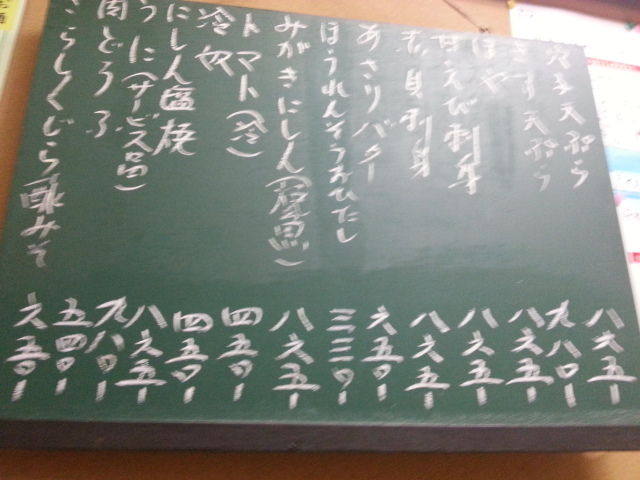 穴子天ぷら 八六五-
きす天ぷら 九八〇-
ほや 八六五-
甘えび刺身 八六五-
赤貝刺身 八六五-
あさりバター 六五〇-
ほうれんそうおひたし 三三〇-
みがきにしん 八六五-
トマト(冷) 四五〇-
冷奴 四五〇-
にしん塩焼 八六五-
うに(サービス品) 九八〇-
肉どうふ 五四〇-
さらしくじら酢みそ 六五〇-